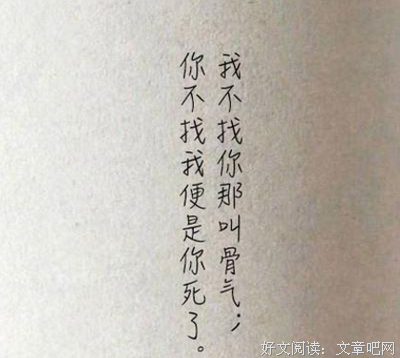 我不找你那叫骨气；
你不找我便是你死了。
好文阅读：文章吧网